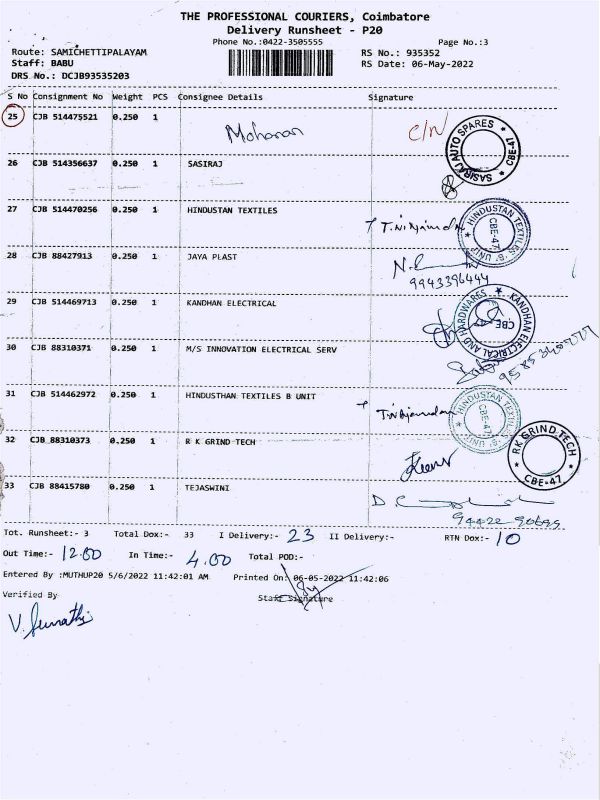 THE PROFESSIONAL COURIERS, Coimbatore
Delivery Runsheet - P20
Phone No.:0422-3505555 Page No.:3
Route: SAMICHETTIPALAYAM RS No.: 935352
Staff: BABU RS Date: 06-May-2022
DRS No.: DCJB93535203
S No Consignment No Weight PCS Consignee Details Signature
25 CJB 514475521 0.250 1 Mohanan C/N
26 CJB 514356637 0.250 1 SASIRAJ
SASIRAJ AUTO SPARES * CBE-47 *
27 CJB 514470256 0.250 1 HINDUSTAN TEXTILES
HINDUSTAN TEXTILES 'B' UNIT * CBE-47
28 CJB 88427913 0.250 1 JAYA PLAST
9943396444
29 CJB 514469713 0.250 1 KANDHAN ELECTRICAL
KANDHAN ELECTRICAL AND HARDWARES * CBE
30 CJB 88310371 0.250 1 M/S INNOVATION ELECTRICAL SERV
31 CJB 514462972 0.250 1 HINDUSTHAN TEXTILES B UNIT
HINDUSTAN TEXTILES 'B' UNIT CBE-47
32 CJB 88310373 0.250 1 R K GRIND TECH
* RK GRIND TECH * CBE-47
33 CJB 88415780 0.250 1 TEJASWINI
Tot. Runsheet:- 3 Total Dox:- 33 I Delivery:- 23 II Delivery:- RTN Dox:- 10
Out Time:- 12.00 In Time:- 4.00 Total POD:-
Entered By :MUTHUP20 5/6/2022 11:42:01 AM Printed On: 06-05-2022 11:42:06
Verified By Staff Signature